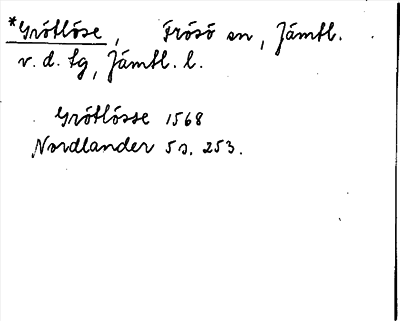 *Grötlöse, Frösö sn, Jämtl.
v. d. tg, Jämtl. l.
Grötlösse 1568
Nordlander 5 s. 253.